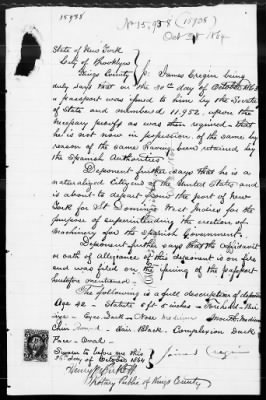 15938
No 15,938 (15938)
Oct 31st 1864
State of New York
City of Brooklyn
Kings County } ss: James Cregin being
duly says that on the 30th day of October 1863
a passport was issued to him by the Secretary
of State and numbered 11,952, upon the
necessary proofs as was then required that
he is not now in possession of the same by
reason of the same having been retained by
the Spanish Authorities
Deponent further says that he is a
naturalized citizen of the United States and
is about to depart from the port of New
York for St Domingo West Indies for the
purpose of superintending the erection of
Machinery for the Spanish Government.
Deponent further says that the affidavit
or oath of allegiance of this deponent is on file
and was filed on the issuing of the passport
heretofore mentioned.
The following is a full description of deponent
Age 42 Stature 5 ft 5 inches Forehead
Eyes Dark Nose Medium Mouth Medium
Chin Round Hair Black Complexion Dark
Face Oval
Sworn to before me this
day of October 1864 } James Cregin
Notary Public of Kings County